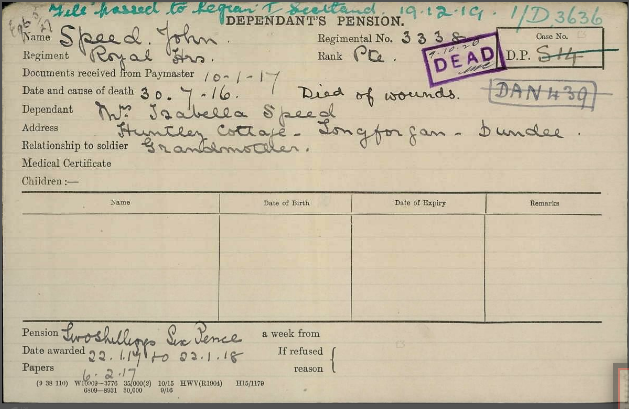 File passed to Region 1 Scotland. 19.12.19. 1/D 3636
DEPENDANT'S PENSION.
Name Speed. John. Regimental No. 3338 Case No.
Regiment Royal Hrs. Rank Pte. D.P. S14
DEAD
Documents received from Paymaster 10-1-17
Date and cause of death 30.7-16. Died of wounds. DAN439
Dependant Mrs Isabella Speed
Address Huntley Cottage - Longforgan - Dundee.
Relationship to soldier Grandmother.
Medical Certificate
Children :—
Name Date of Birth Date of Expiry Remarks
Pension Two Shillings Six Pence a week from
Date awarded 22.1.17 to 22.1.18 If refused
Papers 6.2.17 reason
(9 38 110) W10009—3776 35,000(2) 10/15 HWV(R1004) H15/1179
6809—8931 30,000 9/16